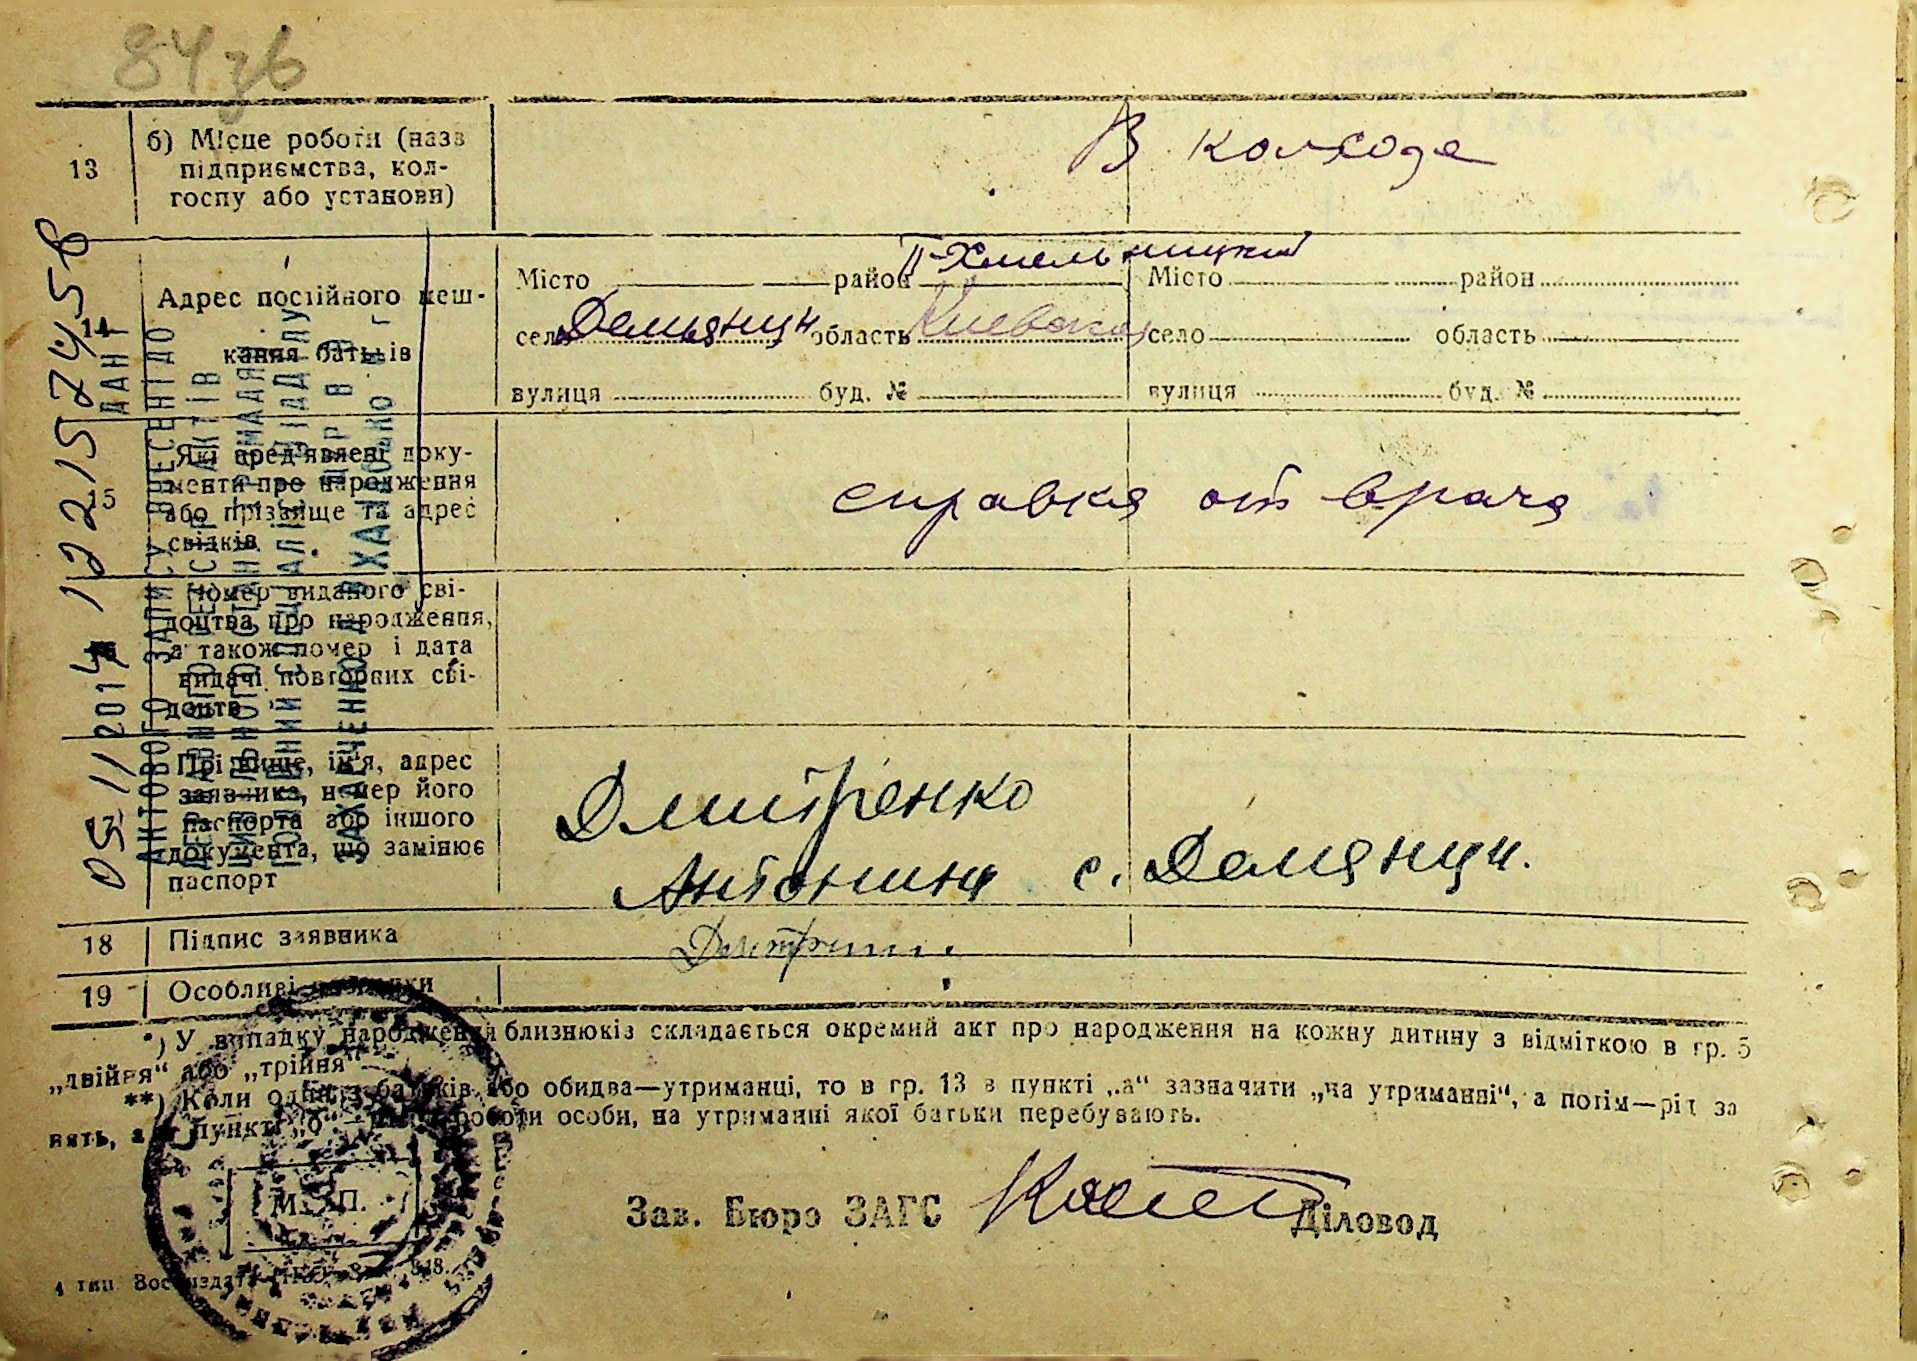 84зв
13 б) Місце роботи (назв
підприємства, кол-
госпу або установи)
В колхозе
Адрес постійного меш-
кання батьків
Місто район П-Хмельницкий
село Демьянци область Киевская
вулиця буд. №
Місто район
село область
вулиця буд. №
15 Які пред'явлені доку-
менти про народження
або прізвище та адрес
свідків
справка от врача
Номер виданого сві-
доцтва про народження,
а також номер і дата
видачі повторних сві-
доцтв
Прізвище, ім'я, адрес
заявника, номер його
паспорта або іншого
документа, що замінює
паспорт
Дмитренко
Антонина с. Демянци.
18 Підпис заявника
19 Особливі
*) У випадку народження близнюків складається окремий акт про народження на кожну дитину з відміткою в гр. 5
„двійня" або „трійня"
**) Коли один з батьків або обидва—утриманці, то в гр. 13 в пункті „а" зазначити „на утриманні", а потім—рід за
нять, а в пункті „б" роботи особи, на утриманні якої батьки перебувають.
М. П.
Зав. Бюро ЗАГС Діловод
05/11/2014 12215 24558
АКТОВОГО ЗАПИСУ ВНЕСЕНІ ДО